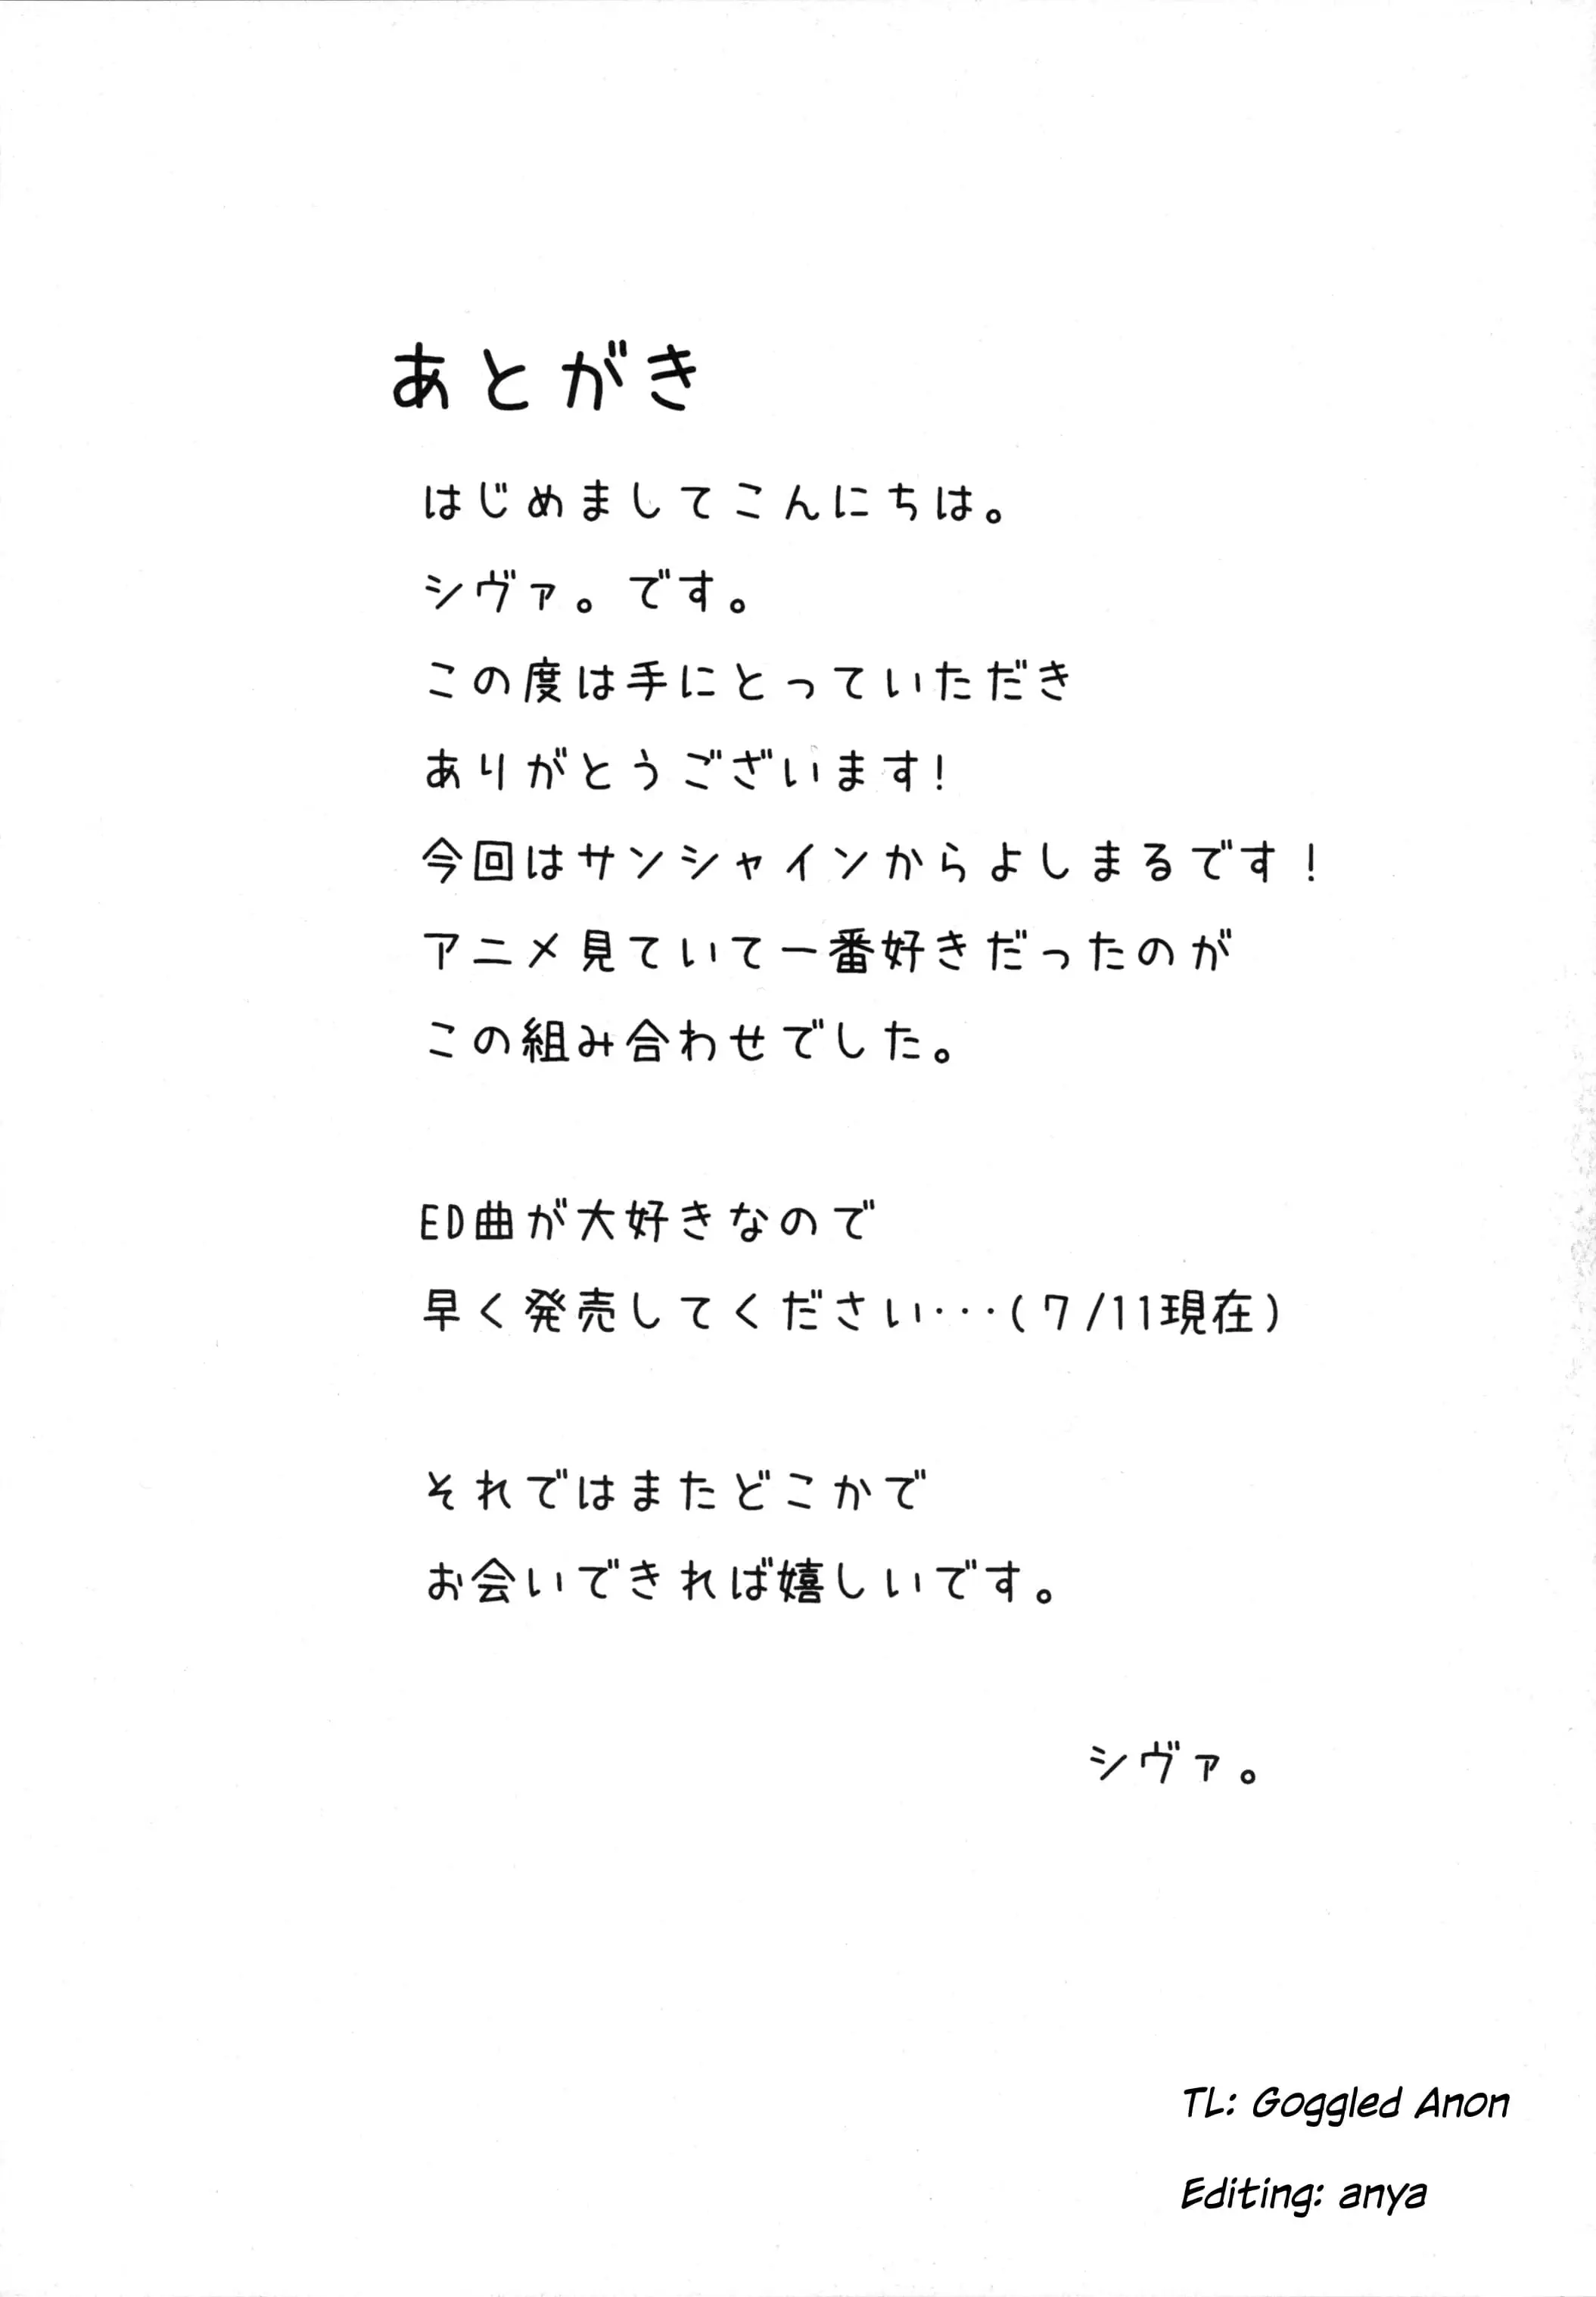 あとがき
はじめましてこんにちは。
シヴァ。です。
この度は手にとっていただき
ありがとうございます!
今回はサンシャインからよしまるです!
アニメ見ていて一番好きだったのが
この組み合わせでした。
ED曲が大好きなので
早く発売してください･･･(7/11現在)
それではまたどこかで
お会いできれば嬉しいです。
シヴァ。
TL: Goggled Anon
Editing: anya